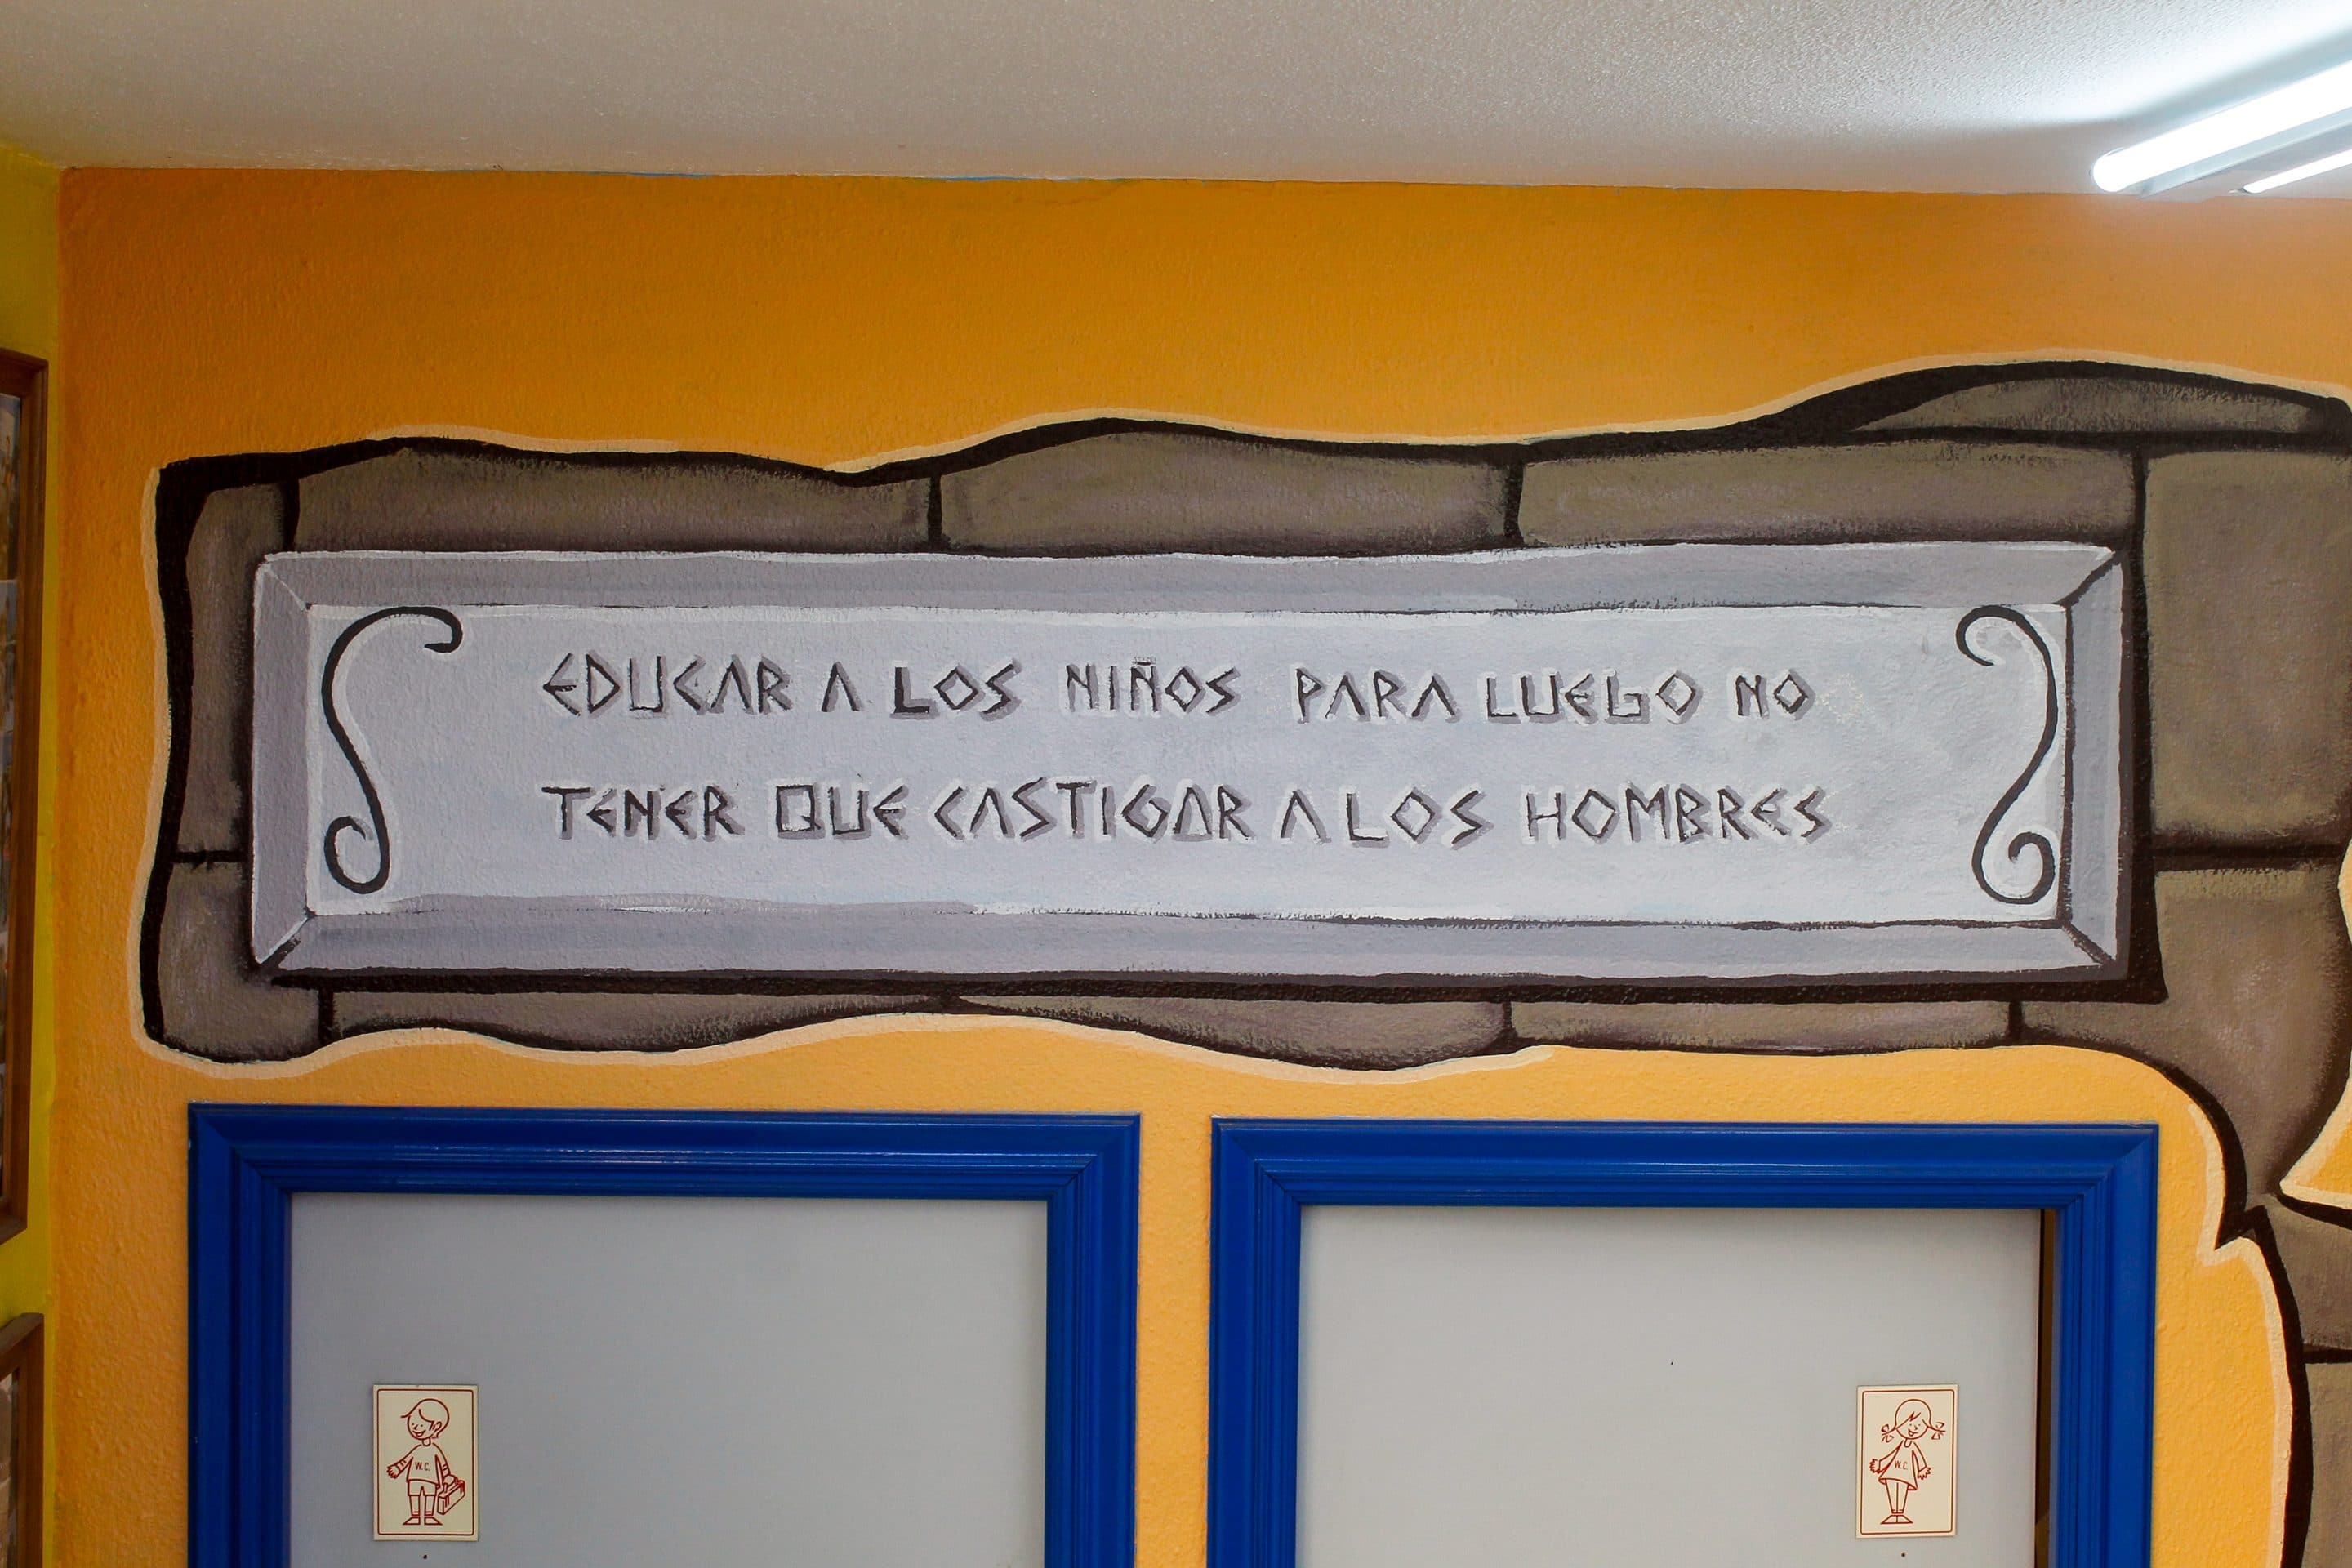 EDUCAR A LOS NIÑOS PARA LUEGO NO
TENER QUE CASTIGAR A LOS HOMBRES
W.C.
W.C.